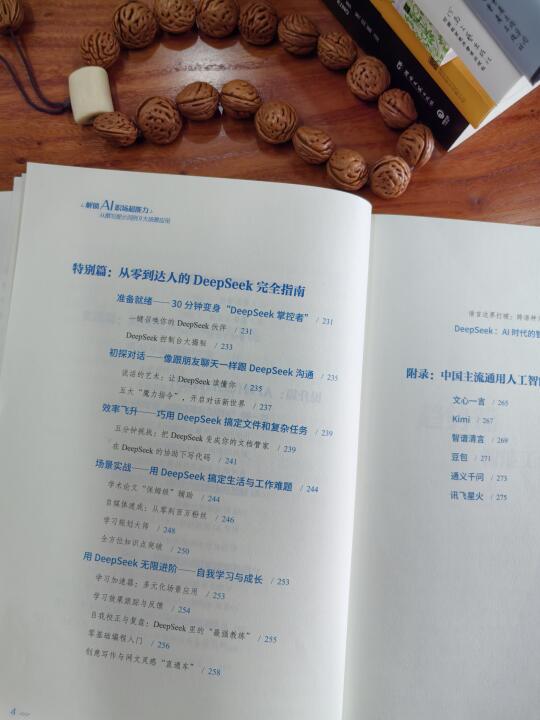 解锁AI职场超能力
特别篇：从零到达人的 DeepSeek 完全指南
准备就绪——30 分钟变身“DeepSeek 掌控者” / 231
一键召唤你的 DeepSeek 伙伴 / 231
DeepSeek 控制台大揭秘 / 233
初探对话——像跟朋友聊天一样跟 DeepSeek 沟通 / 235
说话的艺术：让 DeepSeek 读懂你 / 235
五大“魔力指令”，开启对话新世界 / 237
效率飞升——巧用 DeepSeek 搞定文件和复杂任务 / 239
五分钟挑战：把 DeepSeek 变成你的文档管家 / 239
在 DeepSeek 的协助下写代码 / 241
场景实战——用 DeepSeek 搞定生活与工作难题 / 244
学术论文“保姆级”辅助 / 244
自媒体速成：从零到百万粉丝 / 246
学习规划大师 / 248
全方位知识点突破 / 250
用 DeepSeek 无限进阶——自我学习与成长 / 253
学习加速器：多元化场景应用 / 253
学习效果跟踪与反馈 / 254
自我校正与复盘：DeepSeek 里的“最强教练” / 255
零基础编程入门 / 256
创意写作与网文灵感“直通车” / 258
4
语言边界打破：跨语种
DeepSeek：AI 时代的智
附录：中国主流通用人工智
文心一言 / 265
Kimi / 267
智谱清言 / 269
豆包 / 271
通义千问 / 273
讯飞星火 / 275